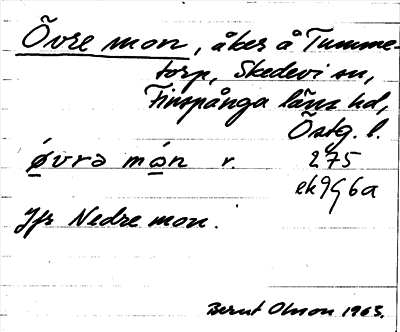 Övre mon, åker å Tumme-
torp, Skedevi sn,
Finspånga läns hd,
Östg. l.
ǿvrə món r. 275
ek9G6a
Jfr Nedre mon.
Bernt Olsson 1963.